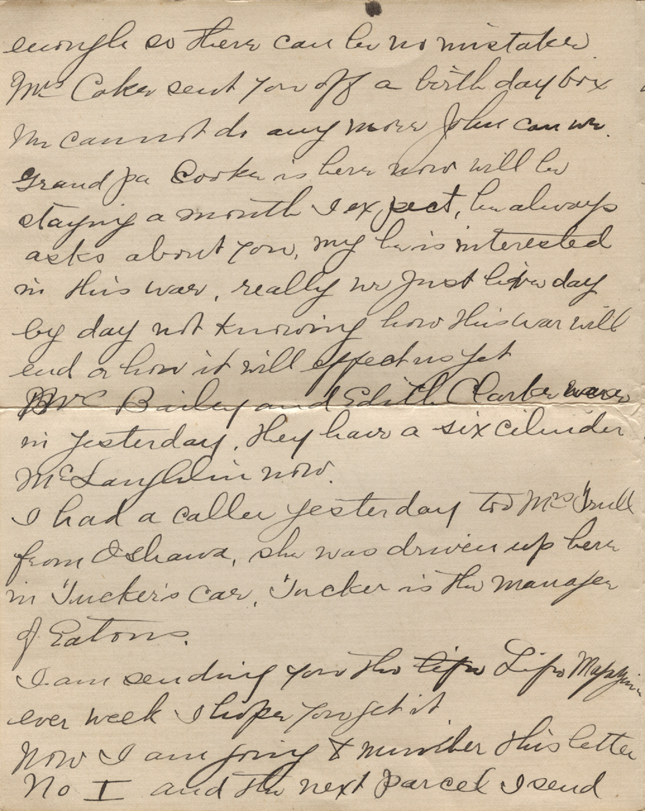 enough so there can be no mistake
Mrs Coker sent you off a birthday box
We cannot do any more John can we.
Grand pa Cooker is here now will be
staying a month I expect, he always
asks about you, my he is interested
in this war, really we just live day
by day not knowing how this war will
end or how it will effect us yet
Mrs Bailey and Edith Clarke were
in yesterday. They have a six cilinder
McLaughlin now.
I had a caller yesterday too Mrs Trull
from Oshawa, she was driven up here
in Tucker's car, Tucker is the manager
of Eatons.
I am sending you the Life Magazine
ever week I hope you get it
Now I am going to number this letter
No I and the next parcel I send